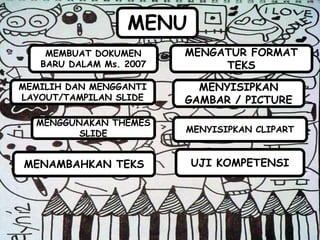 MENU
MEMBUAT DOKUMEN
BARU DALAM Ms. 2007
MEMILIH DAN MENGGANTI
LAYOUT/TAMPILAN SLIDE
MENGGUNAKAN THEMES
SLIDE
MENAMBAHKAN TEKS
MENGATUR FORMAT
TEKS
MENYISIPKAN
GAMBAR / PICTURE
MENYISIPKAN CLIPART
UJI KOMPETENSI
I LOVE